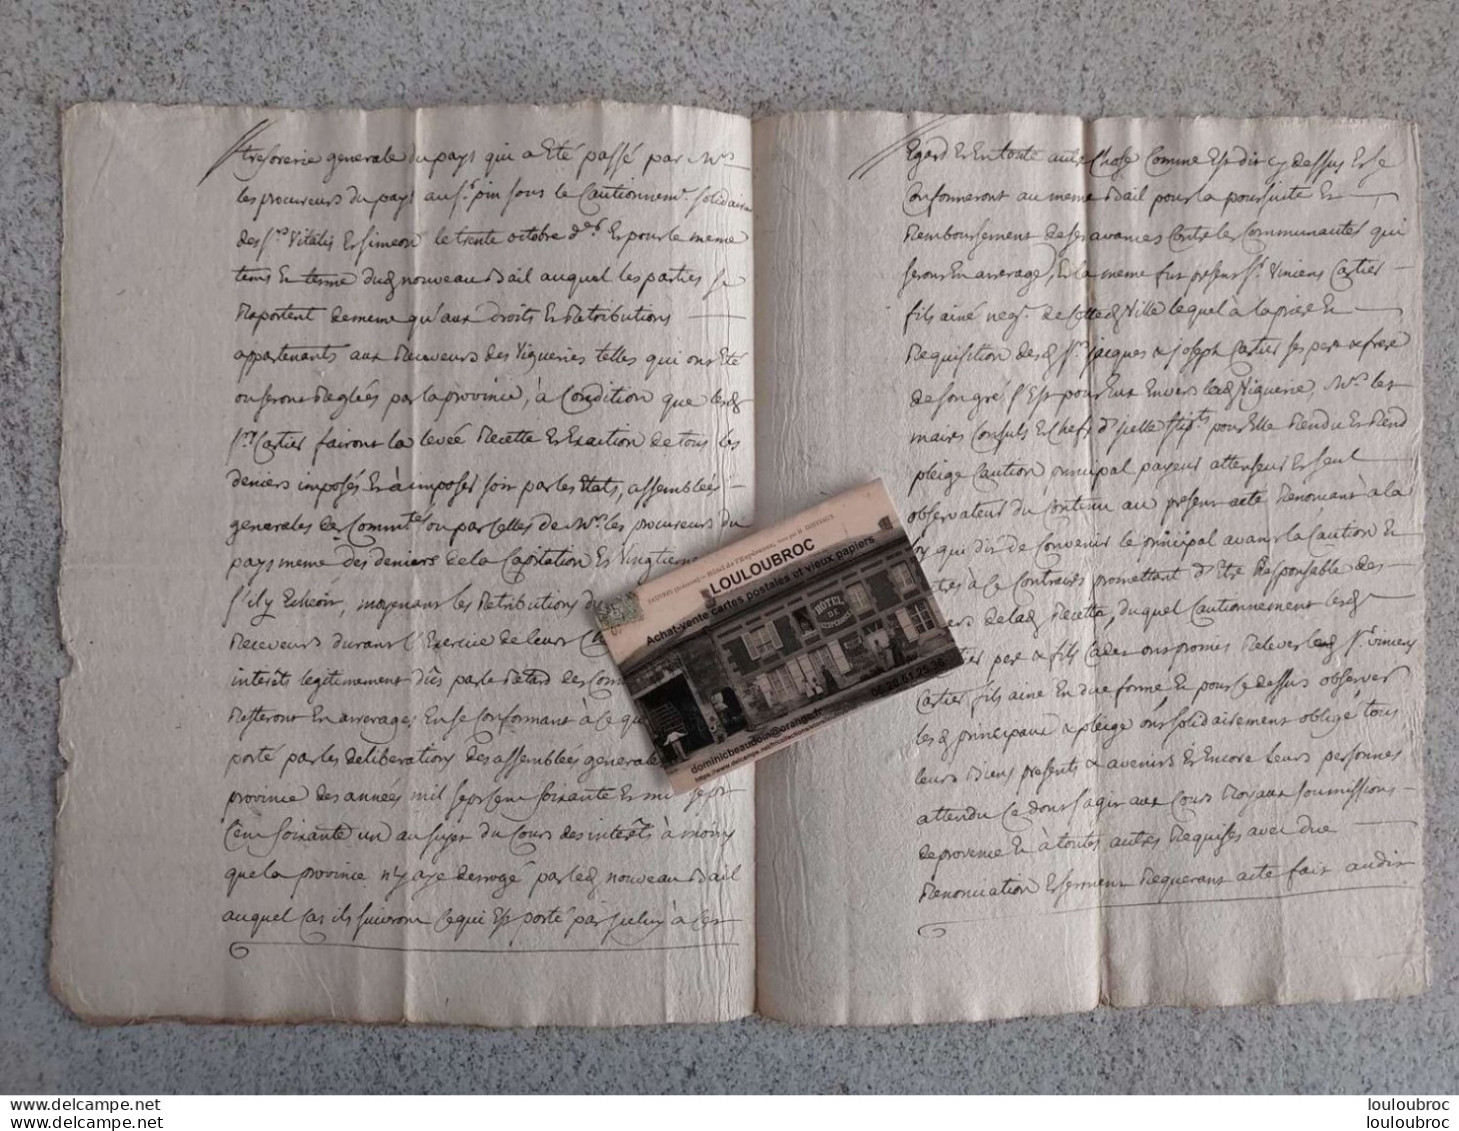 tresorerie generale du pays qui a Eté passé par Mrs
les procureurs du pays au sr. pin sous le Cautionnemt. solidaire
des srs Vitalis Et simeon le trente octobre Et pour le meme
tems Et terme dud nouveau Bail auquel les parties se
Raportent de meme qu'aux droits Et Retributions
appartenants aux Receveurs des Vigueries telles qui ont Eté
ou seront Reglées par la province, à Condition que lesd
srs Cartier fairont la levée Recette Et Exaction de tous les
deniers imposés Et à imposer soit par les Etats, assemblées
generales des Commtés ou par Celles de Mrs. les procureurs du
pays meme des deniers de la Capitation Et Vingtieme
s'il y Echeoit, moyenant les Retributions
Receveurs durant l'Exercice de leur
interêts legitimement dûs par le Retard des
Resteront En arrerages En se Conformant à ce qui
porté par les deliberations des assemblées generales
province des années mil sept cent soixante Et mil sept
Cent soixante un au sujet du Cours des interêts à moins
que la province n'y aye derrogé par led nouveau Bail
auquel Cas ils suivront Ce qui Est porté par jceluy à Cet
Egard Et En toute autre Chose Comme Est dit cy dessus Et se
Conformeront au meme Bail pour la poursuite Et
Remboursement des avances Contre les Communautés qui
seront En arrerage, Et la meme fut present sr. Viniens Cartier
fils ainé negt. de Cette Ville lequel à la priere Et
Requisition desd srs. jacques & joseph Cartier ses pere & frere
de son gré s'Est pour Eux Envers lad Viguerie, Mrs. les
maires Consuls Et Chefs d'jcelle pour Elle Rendu Et Rend
pleige Caution principal payeur attenseur Et seul
observateur du Contenu au present acte Renonçant à la
loy qui dit de Convenir le principal avant la Caution Et
à Ce Contraires promettant d'Etre Responsable des
de lad Recette, duquel Cautionnement lesd
pere & fils Cadet ont promis Relever led sr. Viniens
Cartier fils ainé En due forme Et pour Ce dessus observer
lesd principaux & pleige ont solidairement obligé tous
leurs Biens presents & avenirs Et Encore leurs personnes
attendu Ce dont s'agit aux Cours Royaux soumissions
de provence Et à toutes autres Requises avec due
Renonciation Et serment Requerant acte fait audit
HOTEL
DE
LOULOUBROC
Achat-vente cartes postales et vieux papiers
06.20.61.25.36
dominicbeaudoin@orange.fr
louloubroc
temps-perdu.com
louloubroc
louloubroc